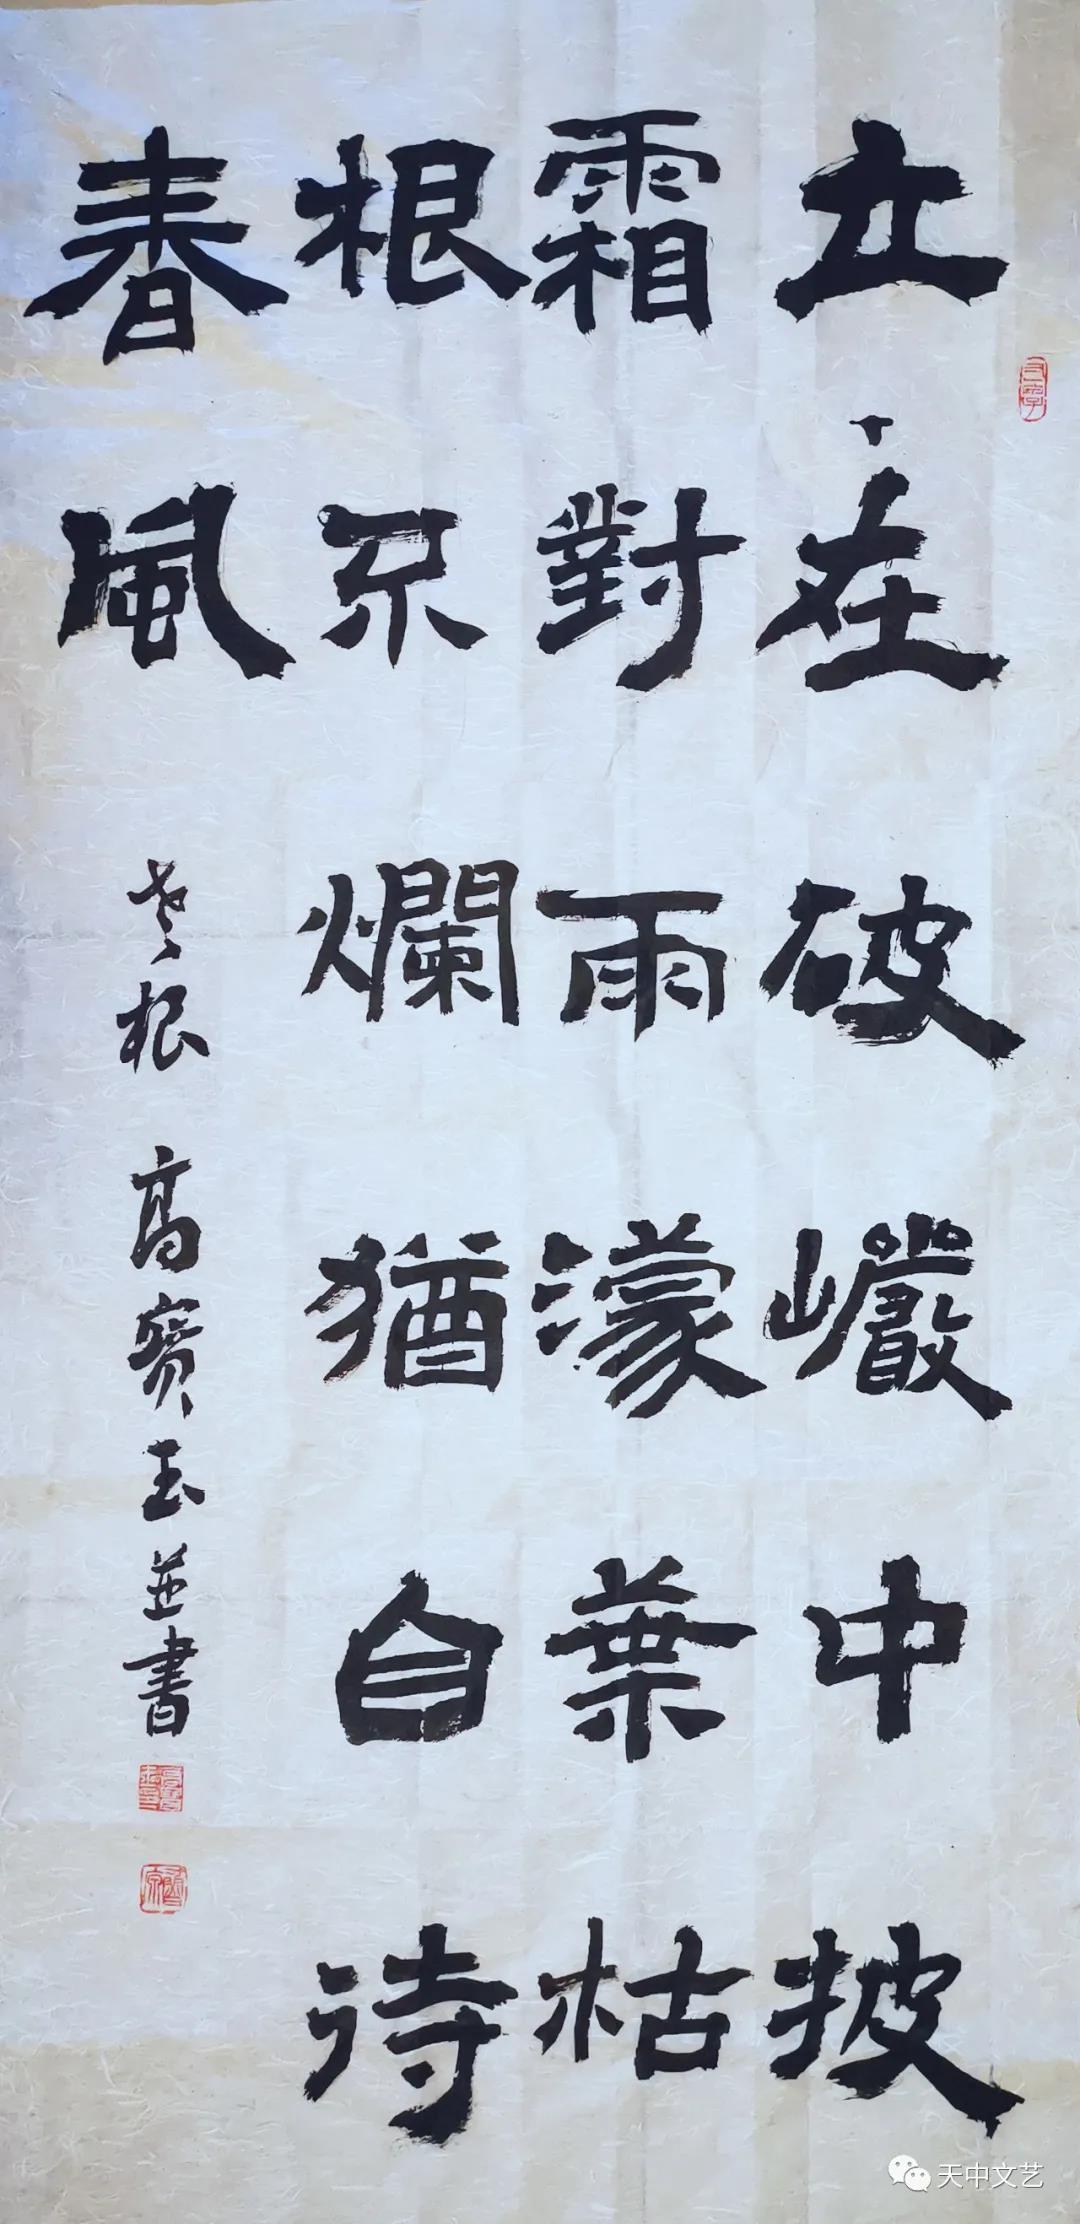 立在破巗中披
霜對雨濛葉枯
根不爛猶自待
春風
老根 高寳玉並書
天中文艺